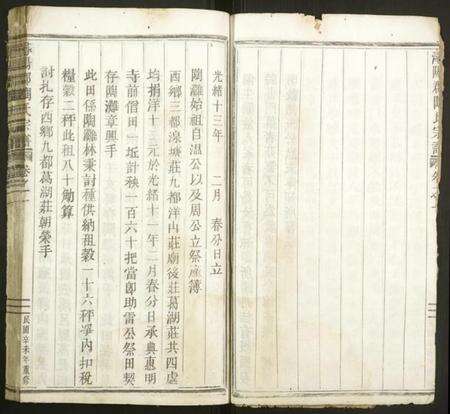 光緒十三年 二月 春分日立
陶離始祖自溫公以及周公立祭產簿
西鄉三都 塘莊九都洋內莊廟後莊葛湖莊共四處
均捐洋十三元於光緒十一年二月春分日承典惠明
寺前僧田一坵計秧一百六十把當即助雷公祭田契
存陶灘章興手
此田係陶離林秉討種供納租穀一十六秤爭內扣稅
糧穀二秤此租八十觔算
討扎存西鄉九都葛湖莊朝榮手
民國辛未年重修